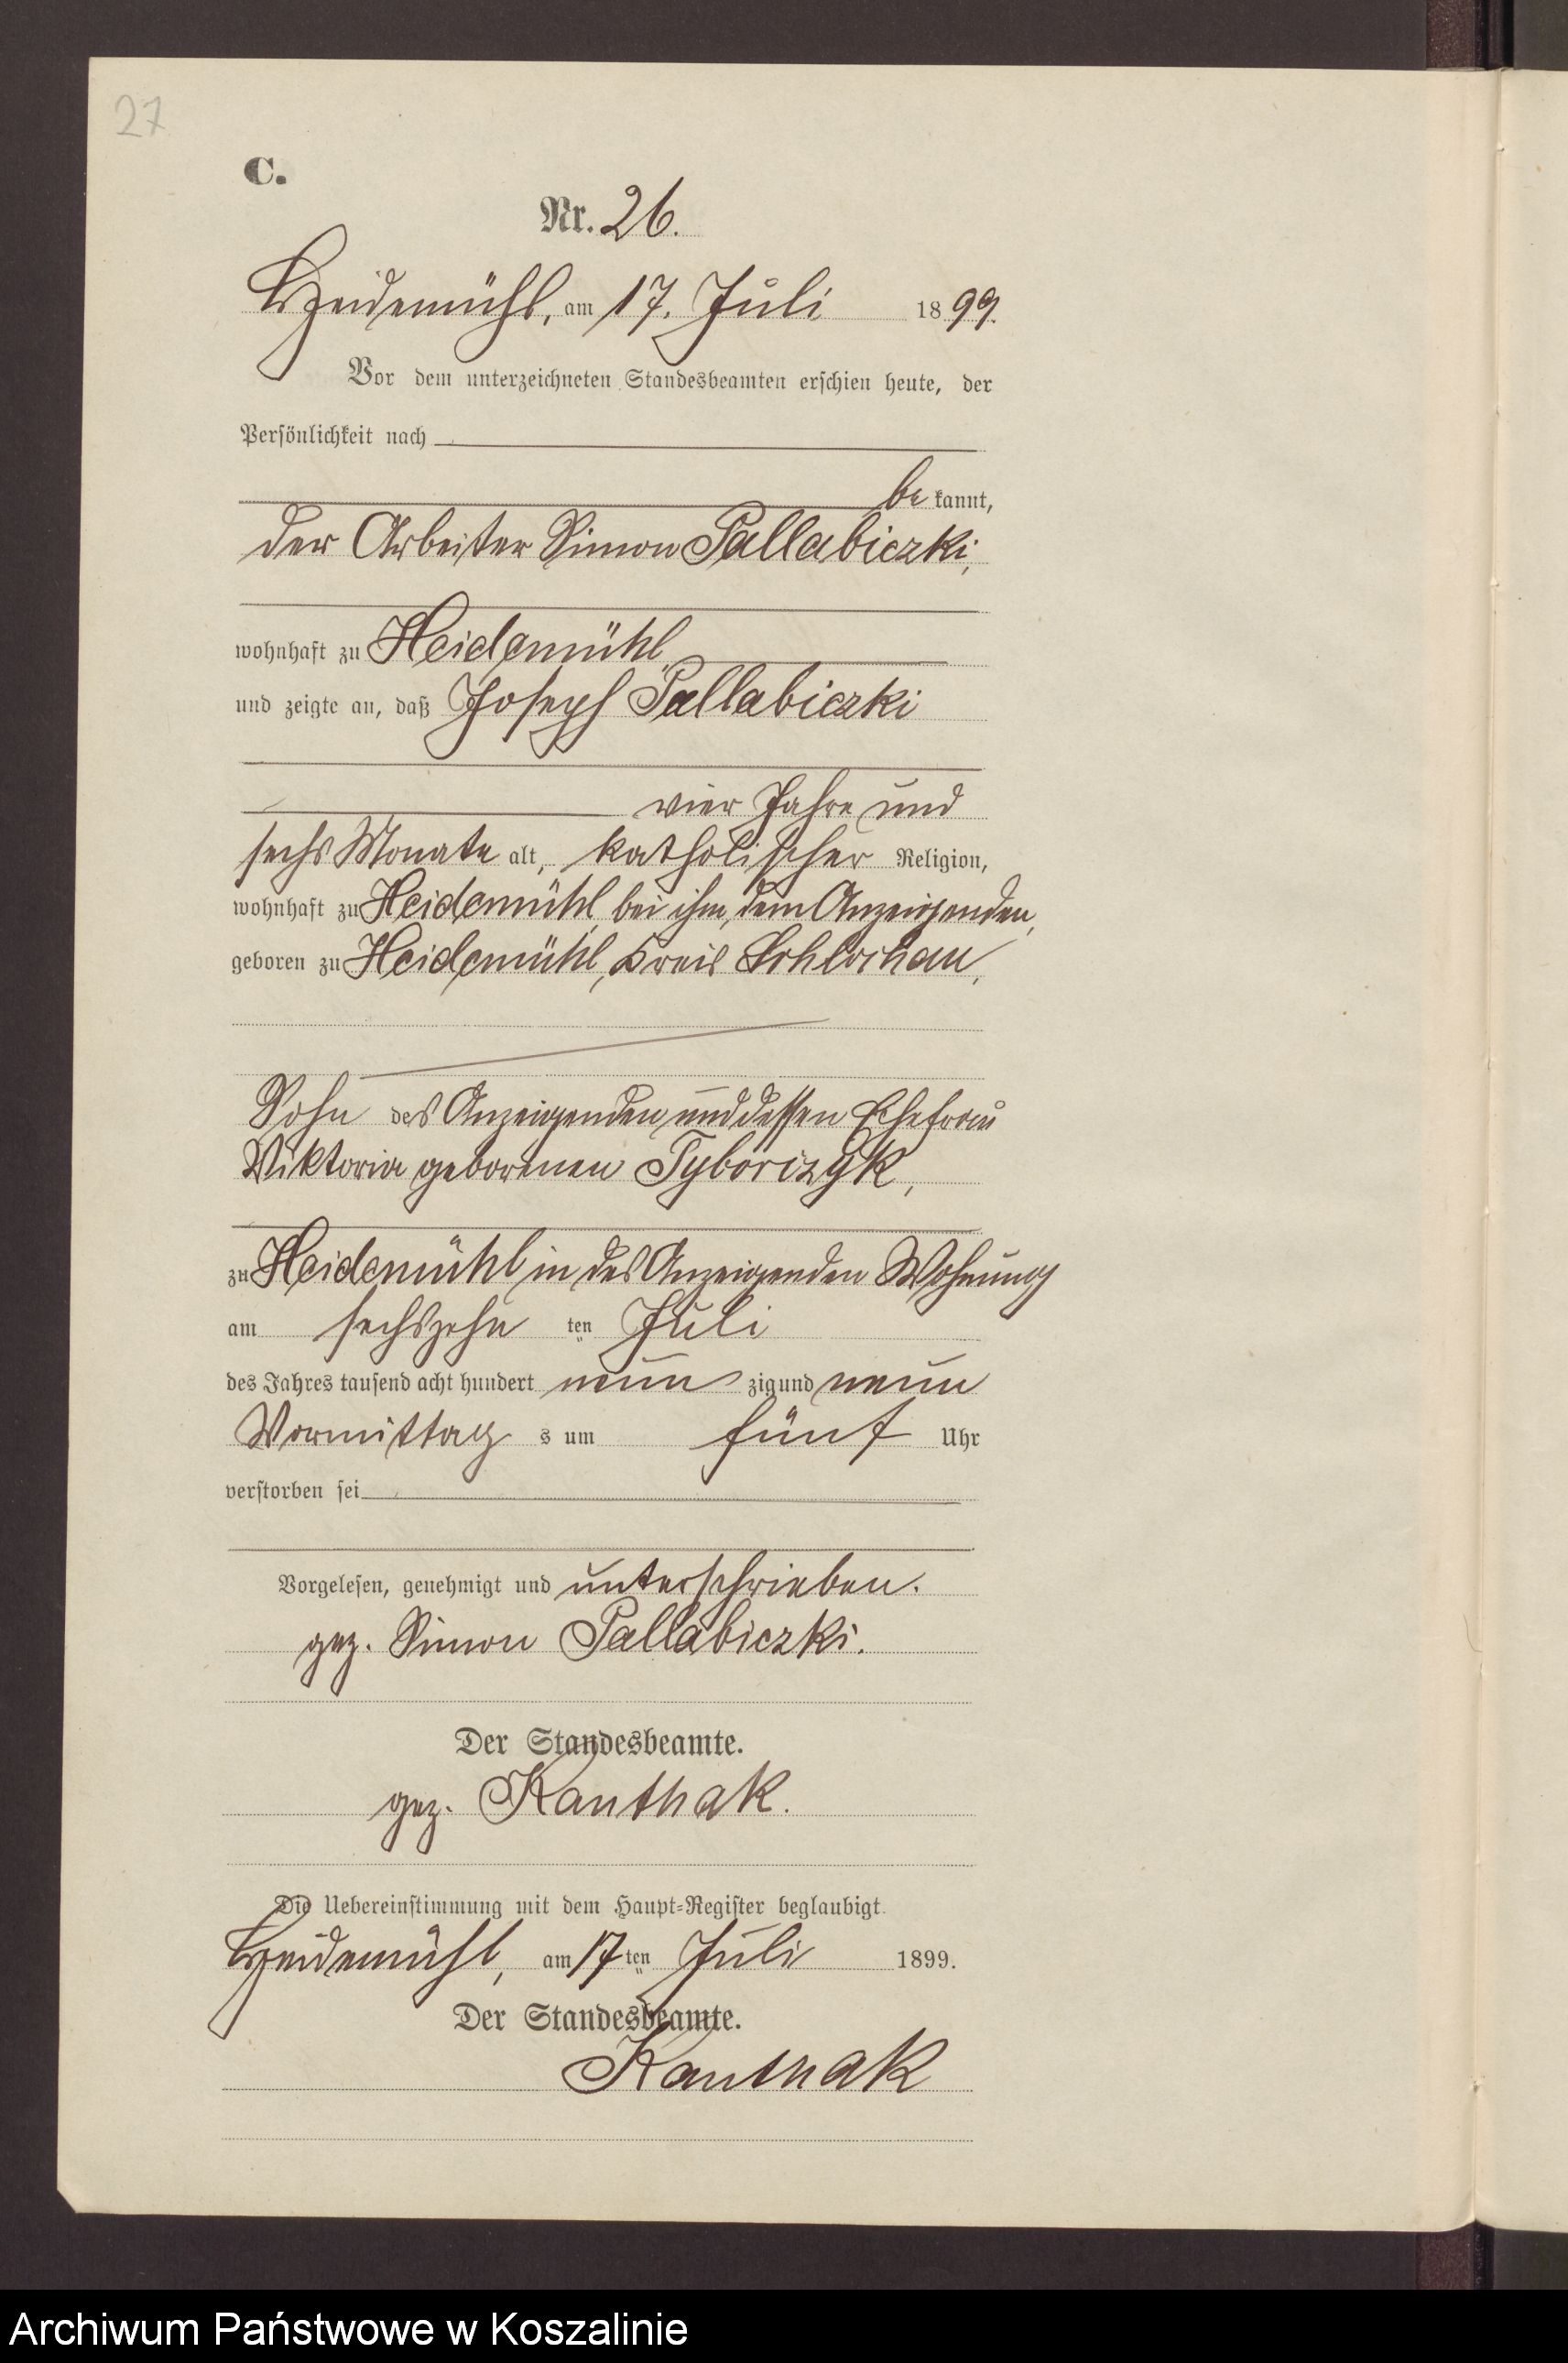 27
C.
Nr. 26.
Heidemühl, am 17. Juli 1899.
Vor dem unterzeichneten Standesbeamten erschien heute, der
Persönlichkeit nach
be kannt,
der Arbeiter Simon Pallabiczki,
wohnhaft zu Heidemühl
und zeigte an, daß Joseph Pallabiczki
vier Jahre und
sechs Monate alt, katholischer Religion,
wohnhaft zu Heidemühl bei ihm, dem Anzeigenden,
geboren zu Heidemühl, Kreis Schlochau,
Sohn des Anzeigenden und dessen Ehefrau
Viktoria geborenen Tyborczyk,
zu Heidemühl in des Anzeigenden Wohnung
am sechszehn ten Juli
des Jahres tausend acht hundert neun zig und neun
Vormittag s um fünf Uhr
verstorben sei
Vorgelesen, genehmigt und unterschrieben.
gez. Simon Pallabiczki.
Der Standesbeamte.
gez. Kanthak.
Die Uebereinstimmung mit dem Haupt-Register beglaubigt.
Heidemühl, am 17 ten Juli 1899.
Der Standesbeamte.
Kanthak
Archiwum Państwowe w Koszalinie